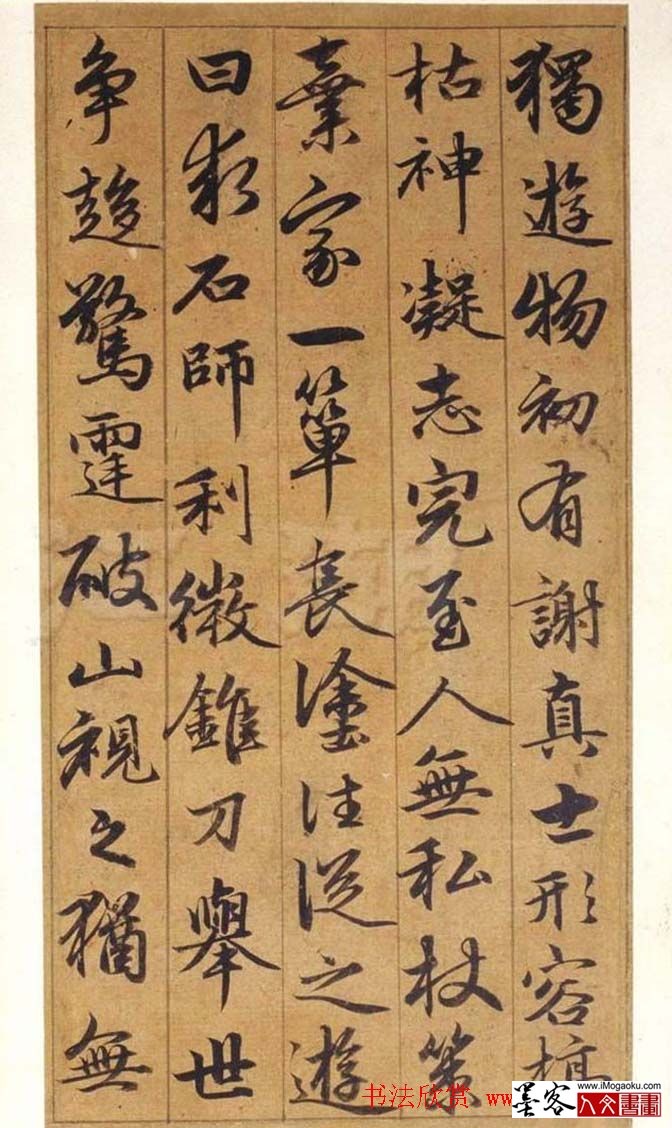 獨遊物初有謝真士形容槁
枯神凝志完至人無私杖策
棄家一簞長塗往從之遊
曰石師利微錐刀舉世
争趍驚霆破山視之猶無
书法欣赏 www
墨客 www.iMogaoku.com
人文書畫